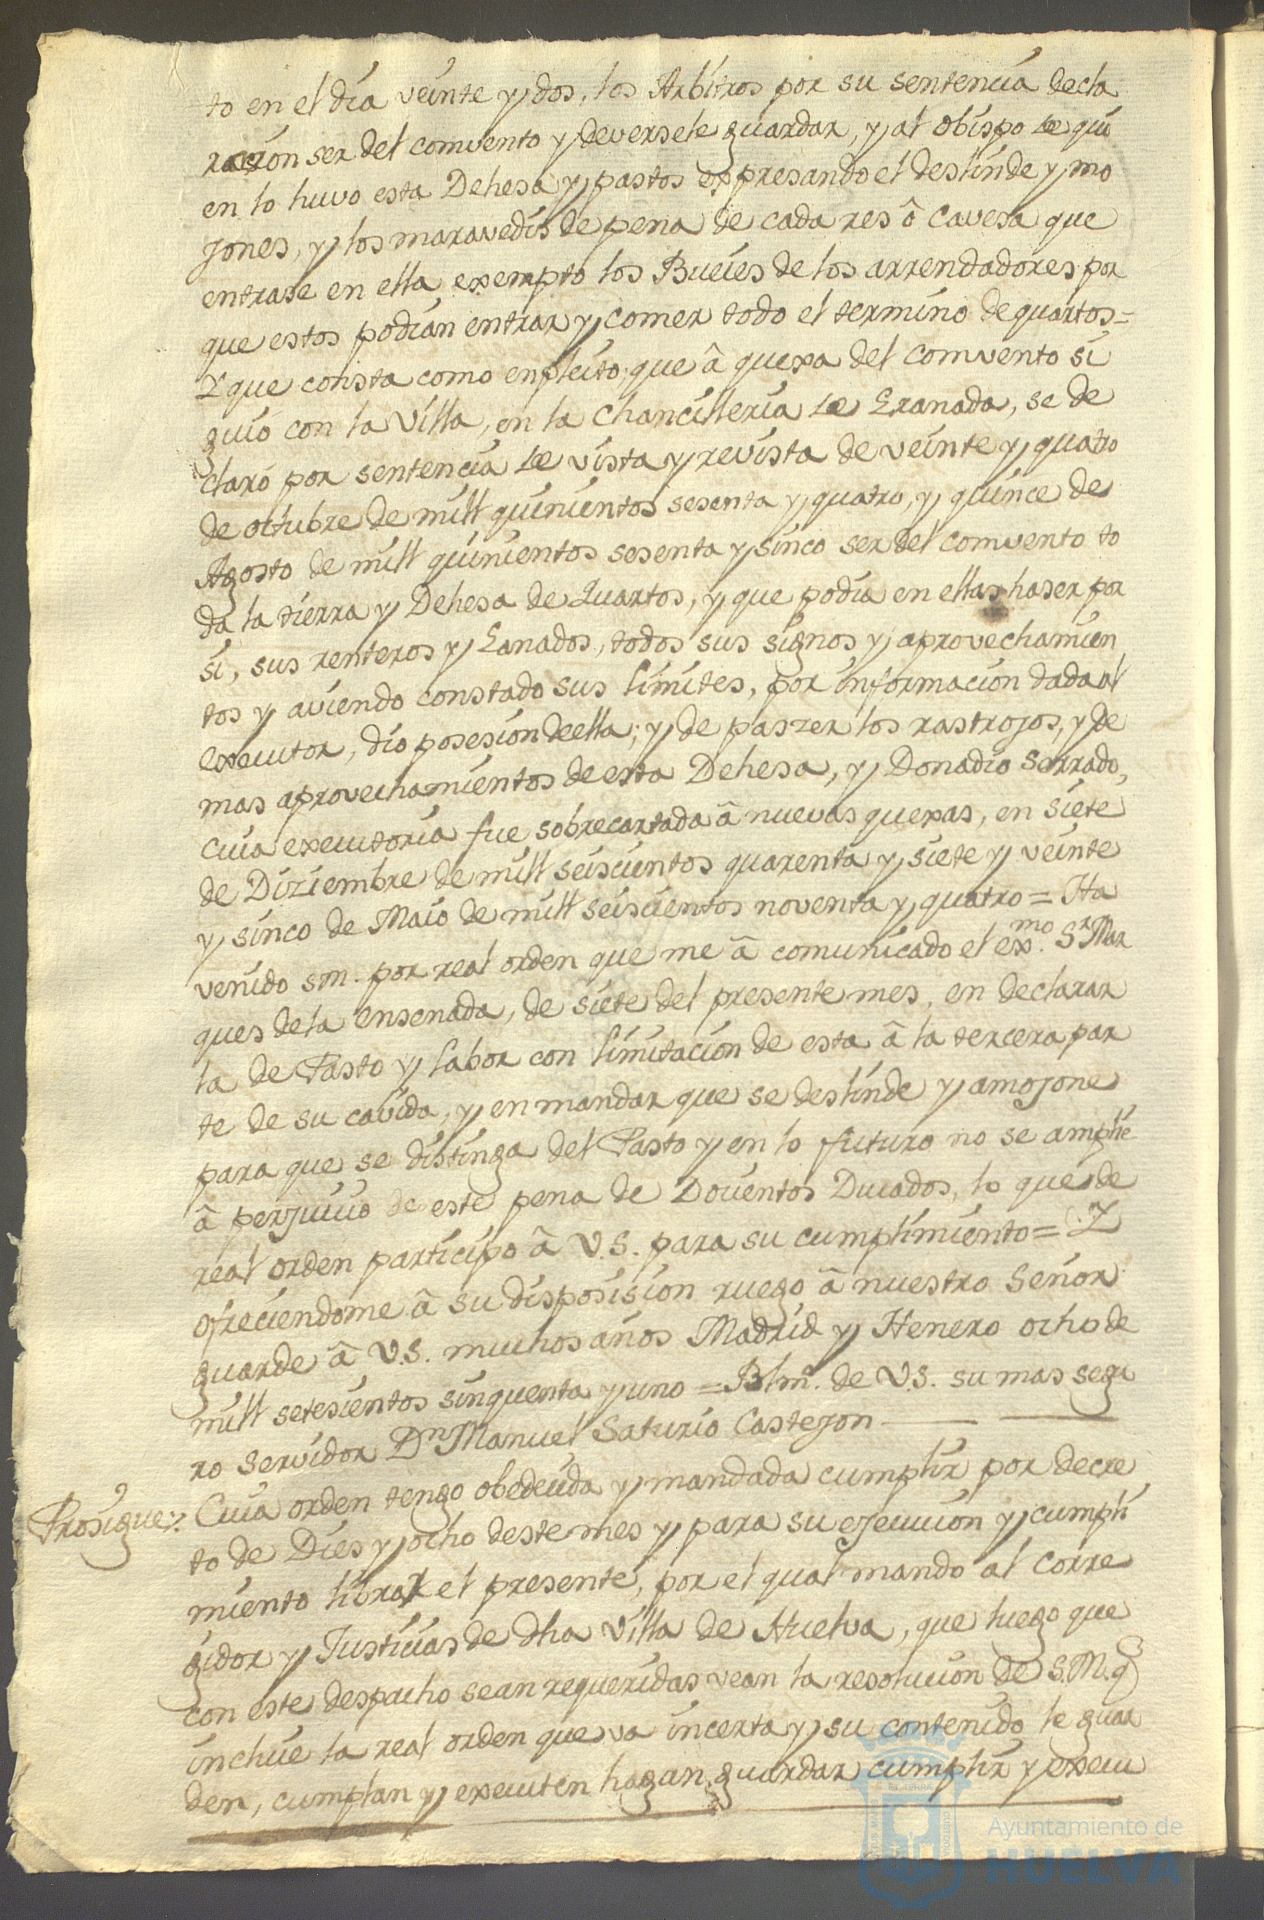 to en el dia veinte y dos, los Arbitros por su sentencia decla
racion ser del comvento y deversele guardar, y al obispo de qui
en lo huvo esta Dehesa y pastos expresando el deslinde y mo
jones, y los maravedis de pena de cada res ô Cavesa que
entrase en ella exempto los Bueies de los arrendadores por
que estos podian entrar y comer todo el termino de quartos=
Y que consta como en pleito que â quexa del Comvento si
guio con la Villa, en la Chancilleria de Granada, se de
claró por sentencia de vista y revista de veinte y quatro
de octubre de mill quinientos sesenta y quatro, y quince de
Agosto de mill quinientos sesenta y sinco ser del comvento to
da la tierra y Dehesa de Quartos, y que podia en ellas haser por
si, sus renteros y Ganados, todos sus signos y aprovechamien
tos y aviendo constado sus limites, por informacion dada al
executor, dio posesion de ella; y de paszer los rastrojos, y de
mas aprovechamientos de esta Dehesa, y Donadio Serrado,
Cuia executoria fue sobrecartada â nuevas quexas, en siete
de Diziembre de mill seiscientos quarenta y siete y veinte
y sinco de Maio de mill seiscientos noventa y quatro = Ha
venido sm. por real orden que me â comunicado el exmo. Sr Mar
ques de la ensenada, de siete del presente mes, en declarar
la de Pasto y labor con limitacion de esta â la tercera par
te de su cavida, y en mandar que se deslinde y amojone
para que se distinga del Pasto y en lo futuro no se amplie
â perjuicio de este pena de Docientos Ducados, lo que de
real orden participo â V.S. para su cumplimiento = Y
ofreciendome â su disposision ruego â nuestro Señor
guarde â V.S. muchos años Madrid y Henero ocho de
mill setesientos sinquenta y uno = Blm. de V.S. su mas segu
ro Servidor Dn Manuel Saturio Castejon
Prosigue: Cuia orden tengo obedecida y mandada cumplir por decre
to de Dies y ocho deste mes y para su ejecucion y cumpli
miento librar el presente, por el qual mando al Corre
gidor y Justicias de dha Villa de Huelva, que luego que
con este despacho sean requeridas vean la resolucion de S.M. q
inclue la real orden que va incerta y su contenido le guar
den, cumplan y executen hagan guardar cumplir y execu
Ayuntamiento de
HUELVA